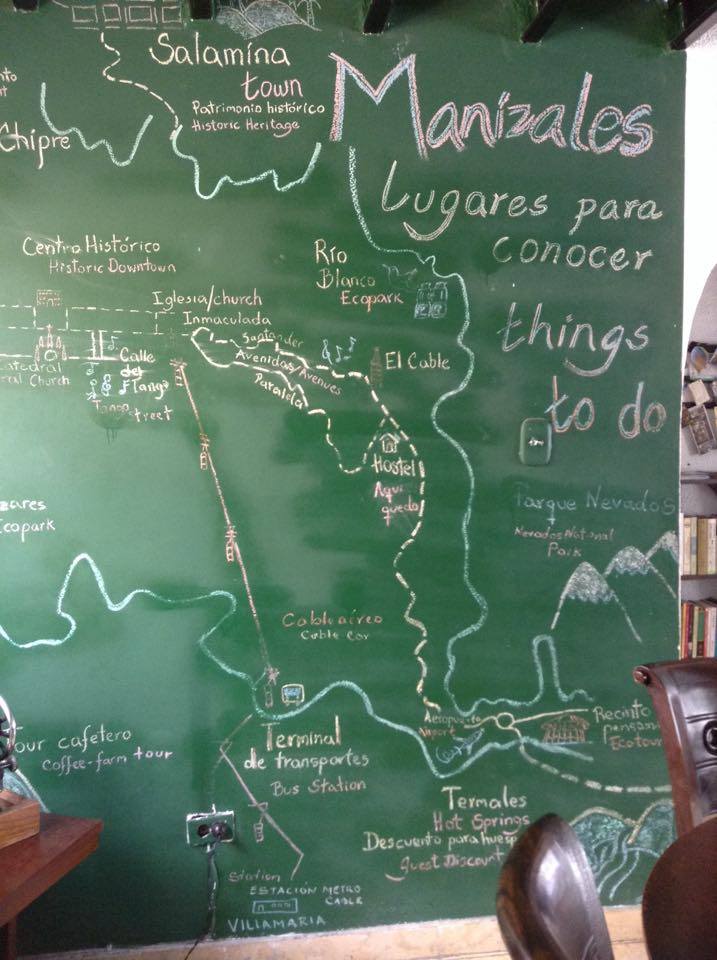 Salamina
town
Patrimonio histórico
Historic Heritage
Manizales
Lugares para
conocer
things
to do
Chipre
Centro Histórico
Historic Downtown
Río
Blanco
Ecopark
Iglesia/church
Inmaculada
Santander
Avenidas/Avenues
Paralela
El Cable
Calle
del
Tango
Tango
Street
Church
Hostel
Aquí
quedo
Ecopark
Parque Nevados
Nevados National
Park
Cable aéreo
Cable Car
Aeropuerto
Airport
Recinto
Ecotour
cafetero
Coffee-farm tour
Terminal
de transportes
Bus Station
Termales
Hot Springs
Descuento para
guest Discount
Station
ESTACIÓN METRO
CABLE
VILLAMARIA